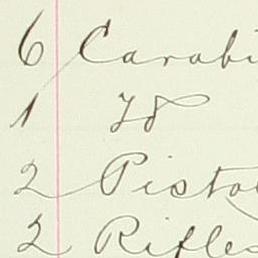 6 Carabi
1 "
2 Pisto
2 Rifles